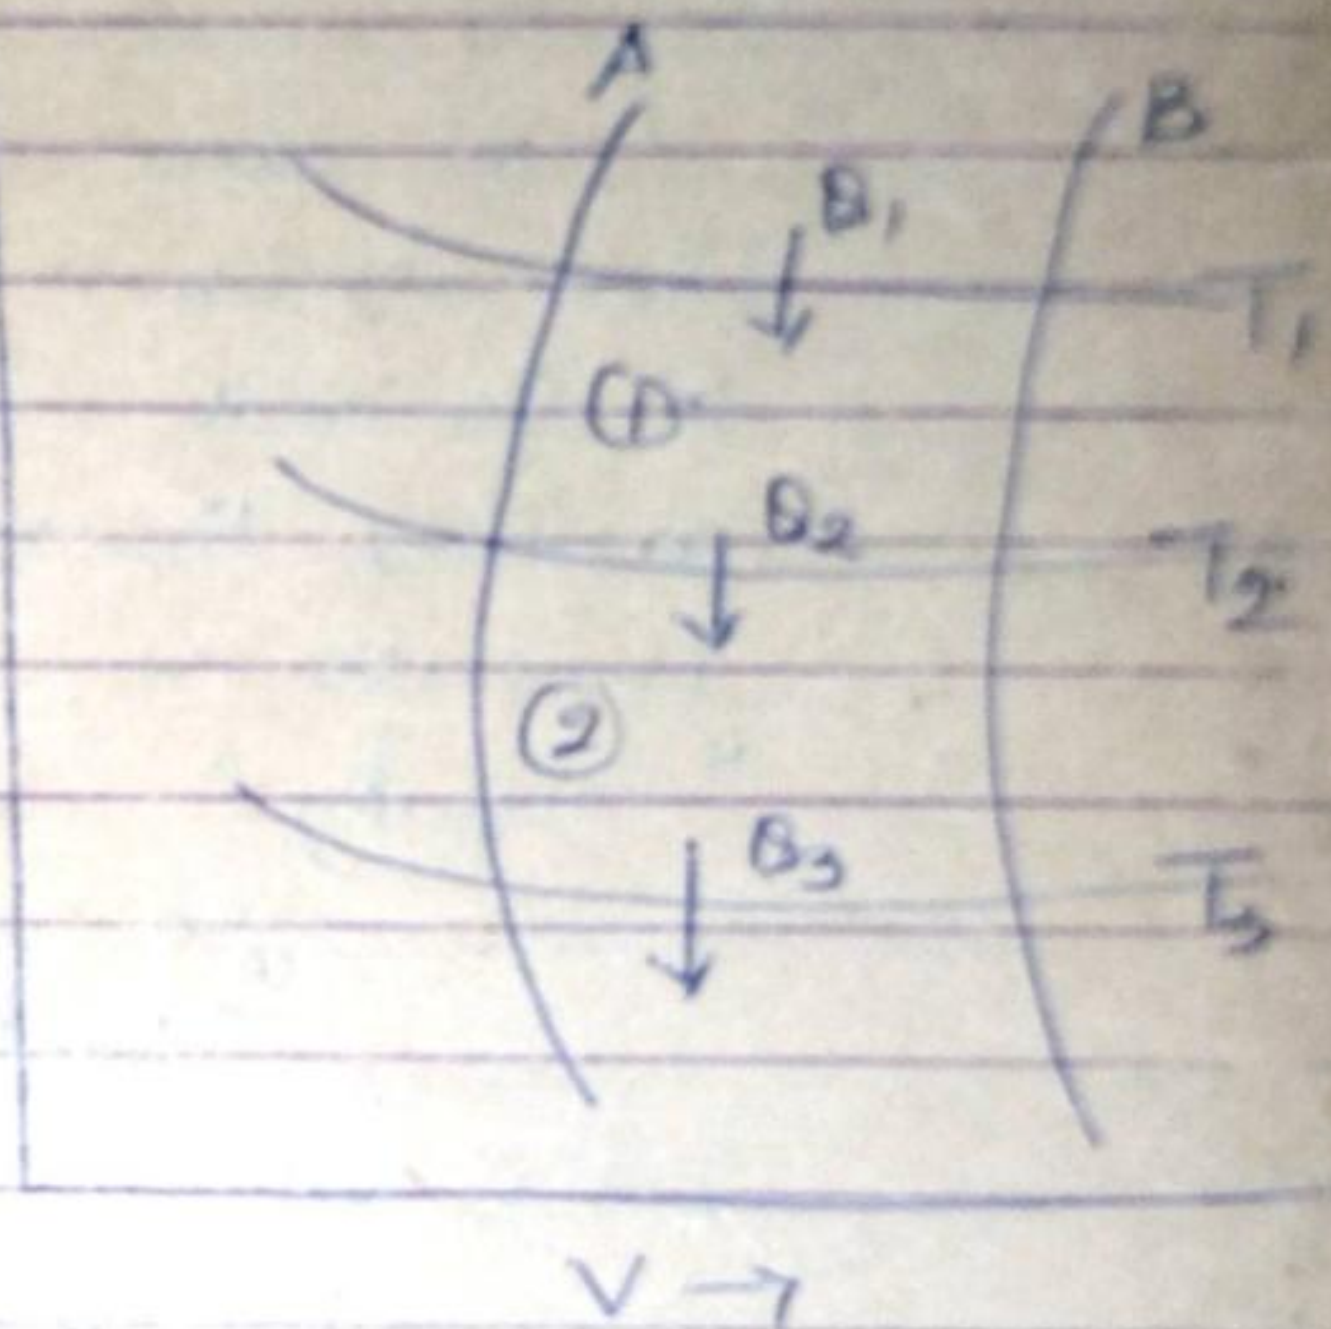 A
B
Q₁
T₁
①
Q₂
T₂
②
Q₃
T₃
V →